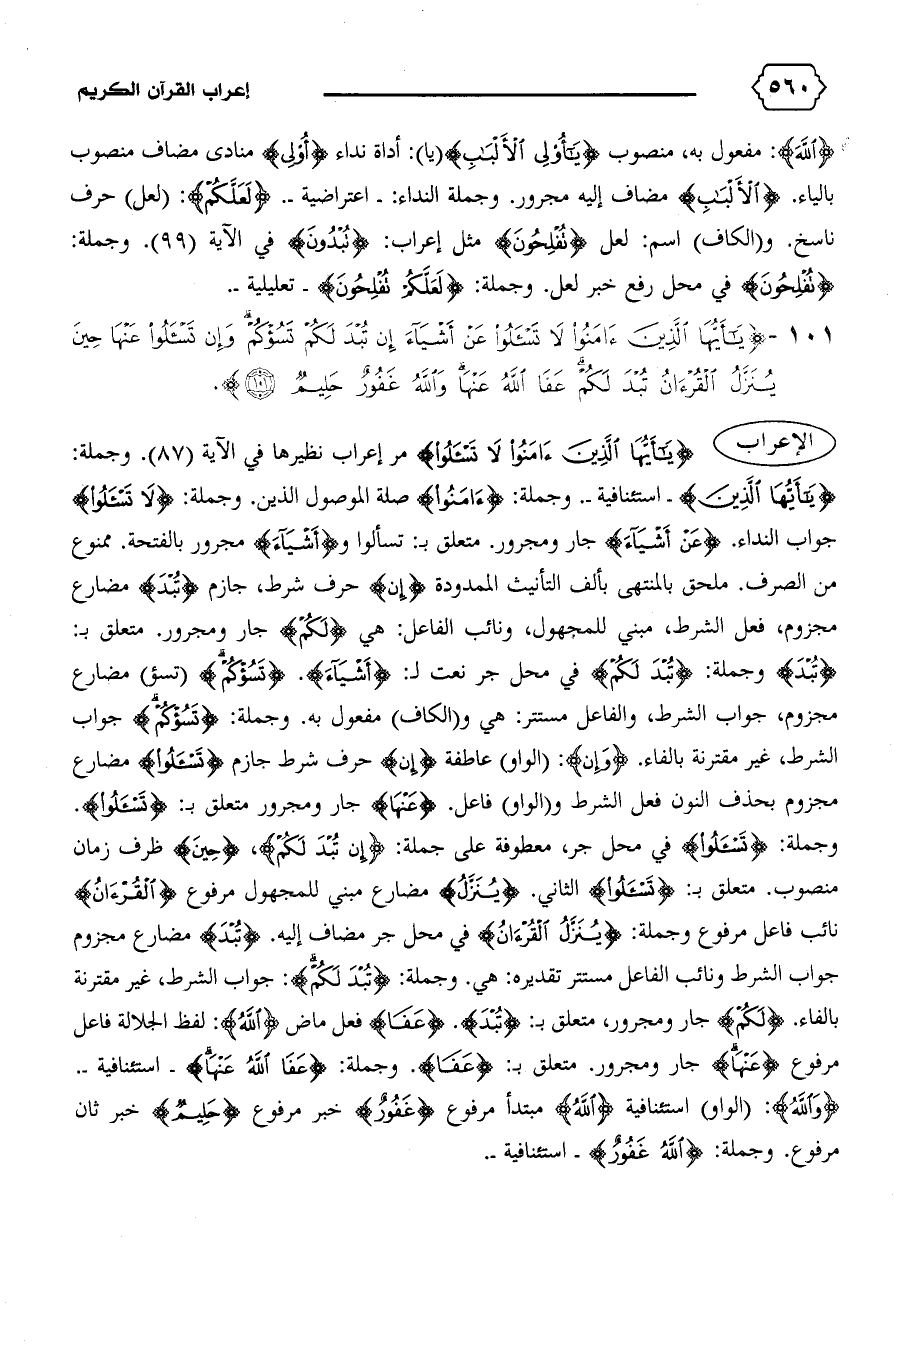 ٥٦٠ إعراب القرآن الكريم
﴿ٱللَّهَ﴾: مفعول به، منصوب ﴿يَٰٓأُو۟لِى ٱلْأَلْبَٰبِ﴾(يا): أداة نداء ﴿أُو۟لِى﴾ منادى مضاف منصوب
بالياء. ﴿ٱلْأَلْبَٰبِ﴾ مضاف إليه مجرور. وجملة النداء: ـ اعتراضية ـ. ﴿لَعَلَّكُمْ﴾: (لعل) حرف
ناسخ. و(الكاف) اسم: لعل ﴿تُفْلِحُونَ﴾ مثل إعراب: ﴿تُبْدُونَ﴾ في الآية (٩٩). وجملة:
﴿تُفْلِحُونَ﴾ في محل رفع خبر لعل. وجملة: ﴿لَعَلَّكُمْ تُفْلِحُونَ﴾ ـ تعليلية ـ.
١٠١ - ﴿يَٰٓأَيُّهَا ٱلَّذِينَ ءَامَنُوا۟ لَا تَسْـَٔلُوا۟ عَنْ أَشْيَآءَ إِن تُبْدَ لَكُمْ تَسُؤْكُمْ ۖ وَإِن تَسْـَٔلُوا۟ عَنْهَا حِينَ
يُنَزَّلُ ٱلْقُرْءَانُ تُبْدَ لَكُمْ ۖ عَفَا ٱللَّهُ عَنْهَا ۗ وَٱللَّهُ غَفُورٌ حَلِيمٌ ١٠١﴾.
الإعراب ﴿يَٰٓأَيُّهَا ٱلَّذِينَ ءَامَنُوا۟ لَا تَسْـَٔلُوا۟﴾ مر إعراب نظيرها في الآية (٨٧). وجملة:
﴿يَٰٓأَيُّهَا ٱلَّذِينَ﴾ ـ استئنافية ـ. وجملة: ﴿ءَامَنُوا۟﴾ صلة الموصول الذين. وجملة: ﴿لَا تَسْـَٔلُوا۟﴾
جواب النداء. ﴿عَنْ أَشْيَآءَ﴾ جار ومجرور. متعلق بـ: تسألوا و﴿أَشْيَآءَ﴾ مجرور بالفتحة. ممنوع
من الصرف. ملحق بالمنتهى بألف التأنيث الممدودة ﴿إِن﴾ حرف شرط، جازم ﴿تُبْدَ﴾ مضارع
مجزوم، فعل الشرط، مبني للمجهول، ونائب الفاعل: هي ﴿لَكُمْ﴾ جار ومجرور. متعلق بـ:
﴿تُبْدَ﴾ وجملة: ﴿تُبْدَ لَكُمْ﴾ في محل جر نعت لـ: ﴿أَشْيَآءَ﴾. ﴿تَسُؤْكُمْ ۖ﴾ (تسؤ) مضارع
مجزوم، جواب الشرط، والفاعل مستتر: هي و(الكاف) مفعول به. وجملة: ﴿تَسُؤْكُمْ ۖ﴾ جواب
الشرط، غير مقترنة بالفاء. ﴿وَإِن﴾: (الواو) عاطفة ﴿إِن﴾ حرف شرط جازم ﴿تَسْـَٔلُوا۟﴾ مضارع
مجزوم بحذف النون فعل الشرط و(الواو) فاعل. ﴿عَنْهَا﴾ جار ومجرور متعلق بـ: ﴿تَسْـَٔلُوا۟﴾.
وجملة: ﴿تَسْـَٔلُوا۟﴾ في محل جر، معطوفة على جملة: ﴿إِن تُبْدَ لَكُمْ﴾، ﴿حِينَ﴾ ظرف زمان
منصوب. متعلق بـ: ﴿تَسْـَٔلُوا۟﴾ الثاني. ﴿يُنَزَّلُ﴾ مضارع مبني للمجهول مرفوع ﴿ٱلْقُرْءَانُ﴾
نائب فاعل مرفوع وجملة: ﴿يُنَزَّلُ ٱلْقُرْءَانُ﴾ في محل جر مضاف إليه. ﴿تُبْدَ﴾ مضارع مجزوم
جواب الشرط ونائب الفاعل مستتر تقديره: هي. وجملة: ﴿تُبْدَ لَكُمْ ۖ﴾: جواب الشرط، غير مقترنة
بالفاء. ﴿لَكُمْ﴾ جار ومجرور، متعلق بـ: ﴿تُبْدَ﴾. ﴿عَفَا﴾ فعل ماض ﴿ٱللَّهُ﴾: لفظ الجلالة فاعل
مرفوع ﴿عَنْهَا ۗ﴾ جار ومجرور. متعلق بـ: ﴿عَفَا﴾. وجملة: ﴿عَفَا ٱللَّهُ عَنْهَا ۗ﴾ ـ استئنافية ـ.
﴿وَٱللَّهُ﴾: (الواو) استئنافية ﴿ٱللَّهُ﴾ مبتدأ مرفوع ﴿غَفُورٌ﴾ خبر مرفوع ﴿حَلِيمٌ﴾ خبر ثان
مرفوع. وجملة: ﴿ٱللَّهُ غَفُورٌ﴾ ـ استئنافية ـ.